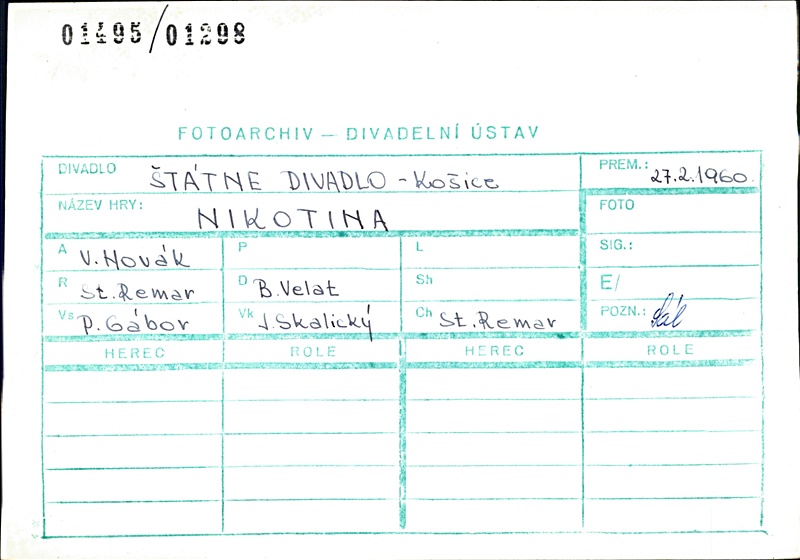 01495/01298
FOTOARCHIV – DIVADELNÍ ÚSTAV
DIVADLO ŠTÁTNE DIVADLO – Košice
PREM.: 27.2.1960.
NÁZEV HRY: NIKOTINA
FOTO
A V. Novák
P
L
SIG.:
R St. Remar
D B. Velat
Sh
E/
Vs P. Gábor
Vk J. Skalický
Ch St. Remar
POZN.:
HEREC ROLE HEREC ROLE